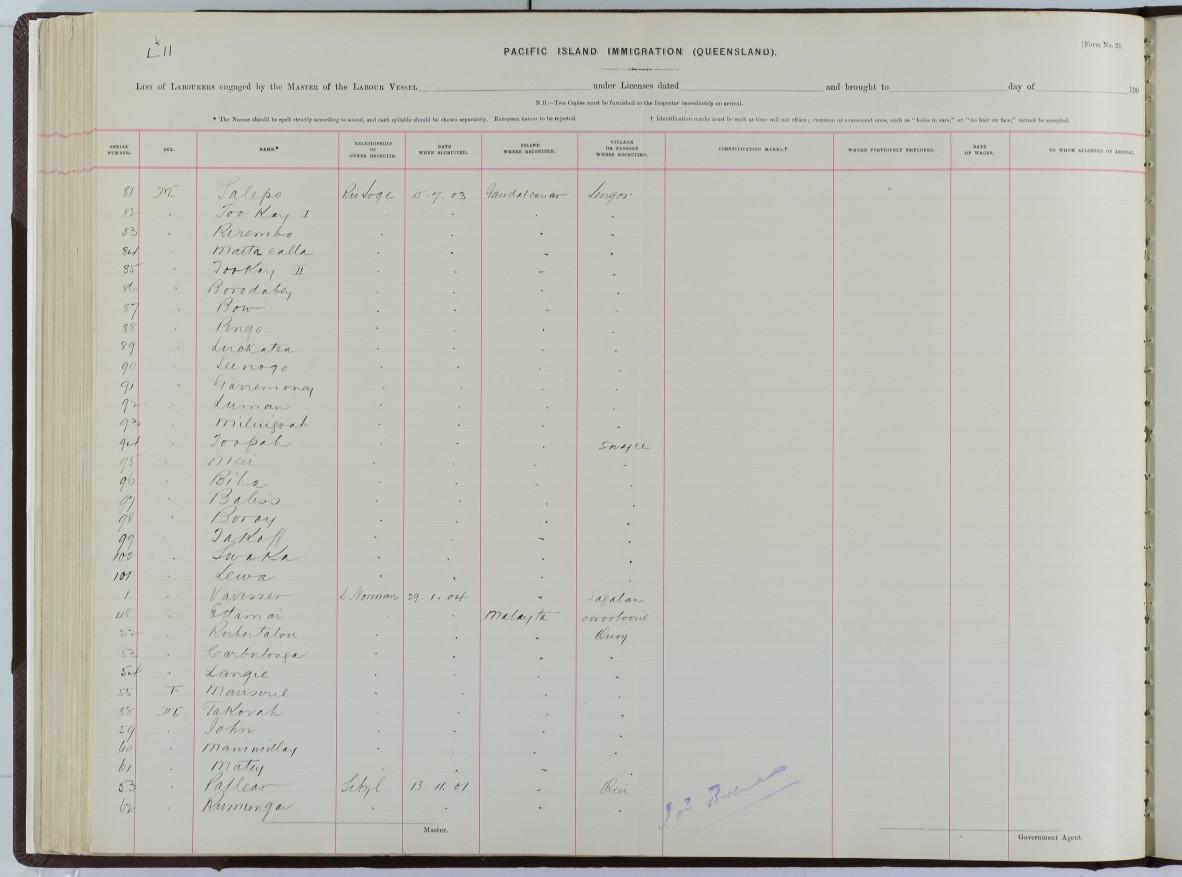 L 11
PACIFIC ISLAND IMMIGRATION (QUEENSLAND).
[Form No. 21.
LIST of LABOURERS engaged by the MASTER of the LABOUR VESSEL under Licenses dated and brought to day of 190
N.B.—Two Copies must be furnished to the Inspector immediately on arrival.
* The Names should be spelt strictly according to sound, and each syllable should be shown separately. European names to be rejected. † Identification marks must be such as time will not efface; common or evanescent ones, such as "holes in ears," or "no hair on face," cannot be accepted.
SERIAL NUMBER. SEX. NAME.* RELATIONSHIP TO OTHER RECRUITS. DATE WHEN RECRUITED. ISLAND WHERE RECRUITED. VILLAGE OR PASSAGE WHERE RECRUITED. IDENTIFICATION MARKS.† WHERE PREVIOUSLY EMPLOYED. RATE OF WAGES. TO WHOM ALLOTTED ON ARRIVAL.
81 M Salepo Rio Loge 15.7.03 Gaudalcanar Lengor
82 . Too Kay I . . . .
83 . Rerembo . . . .
84 . Matta calla . . . .
85 . Too Kay II . . . .
86 . Borodabey . . . .
87 . Bow . . . .
88 . Pengo . . . .
89 . Luckatea . . . .
90 . . . . .
91 . Garremoney . . . .
92 . Luman . . . .
93 . Milingoah . . . .
94 . Toopah . . .
95 . . . . .
96 . Biha . . . .
97 . Baliss . . . .
98 . Boray . . . .
99 . Takoff . . . .
100 . Swaka . . . .
101 . Lewa . . . .
1 . Vavisser L Norman 29.1.04 . Sagalan
48 . . . Malayta
52 . Rubertalou . . .
52 . Carbulonga . . . .
54 . Langie . . . .
55 F . . . .
58 M Takovah . . . .
59 . John . . . .
60 . Mammillay . . . .
61 . Matey . . . .
53 . Paflear Sibyl 13.11.01 .
62 . Rumunga . . . .
Master.
Government Agent.